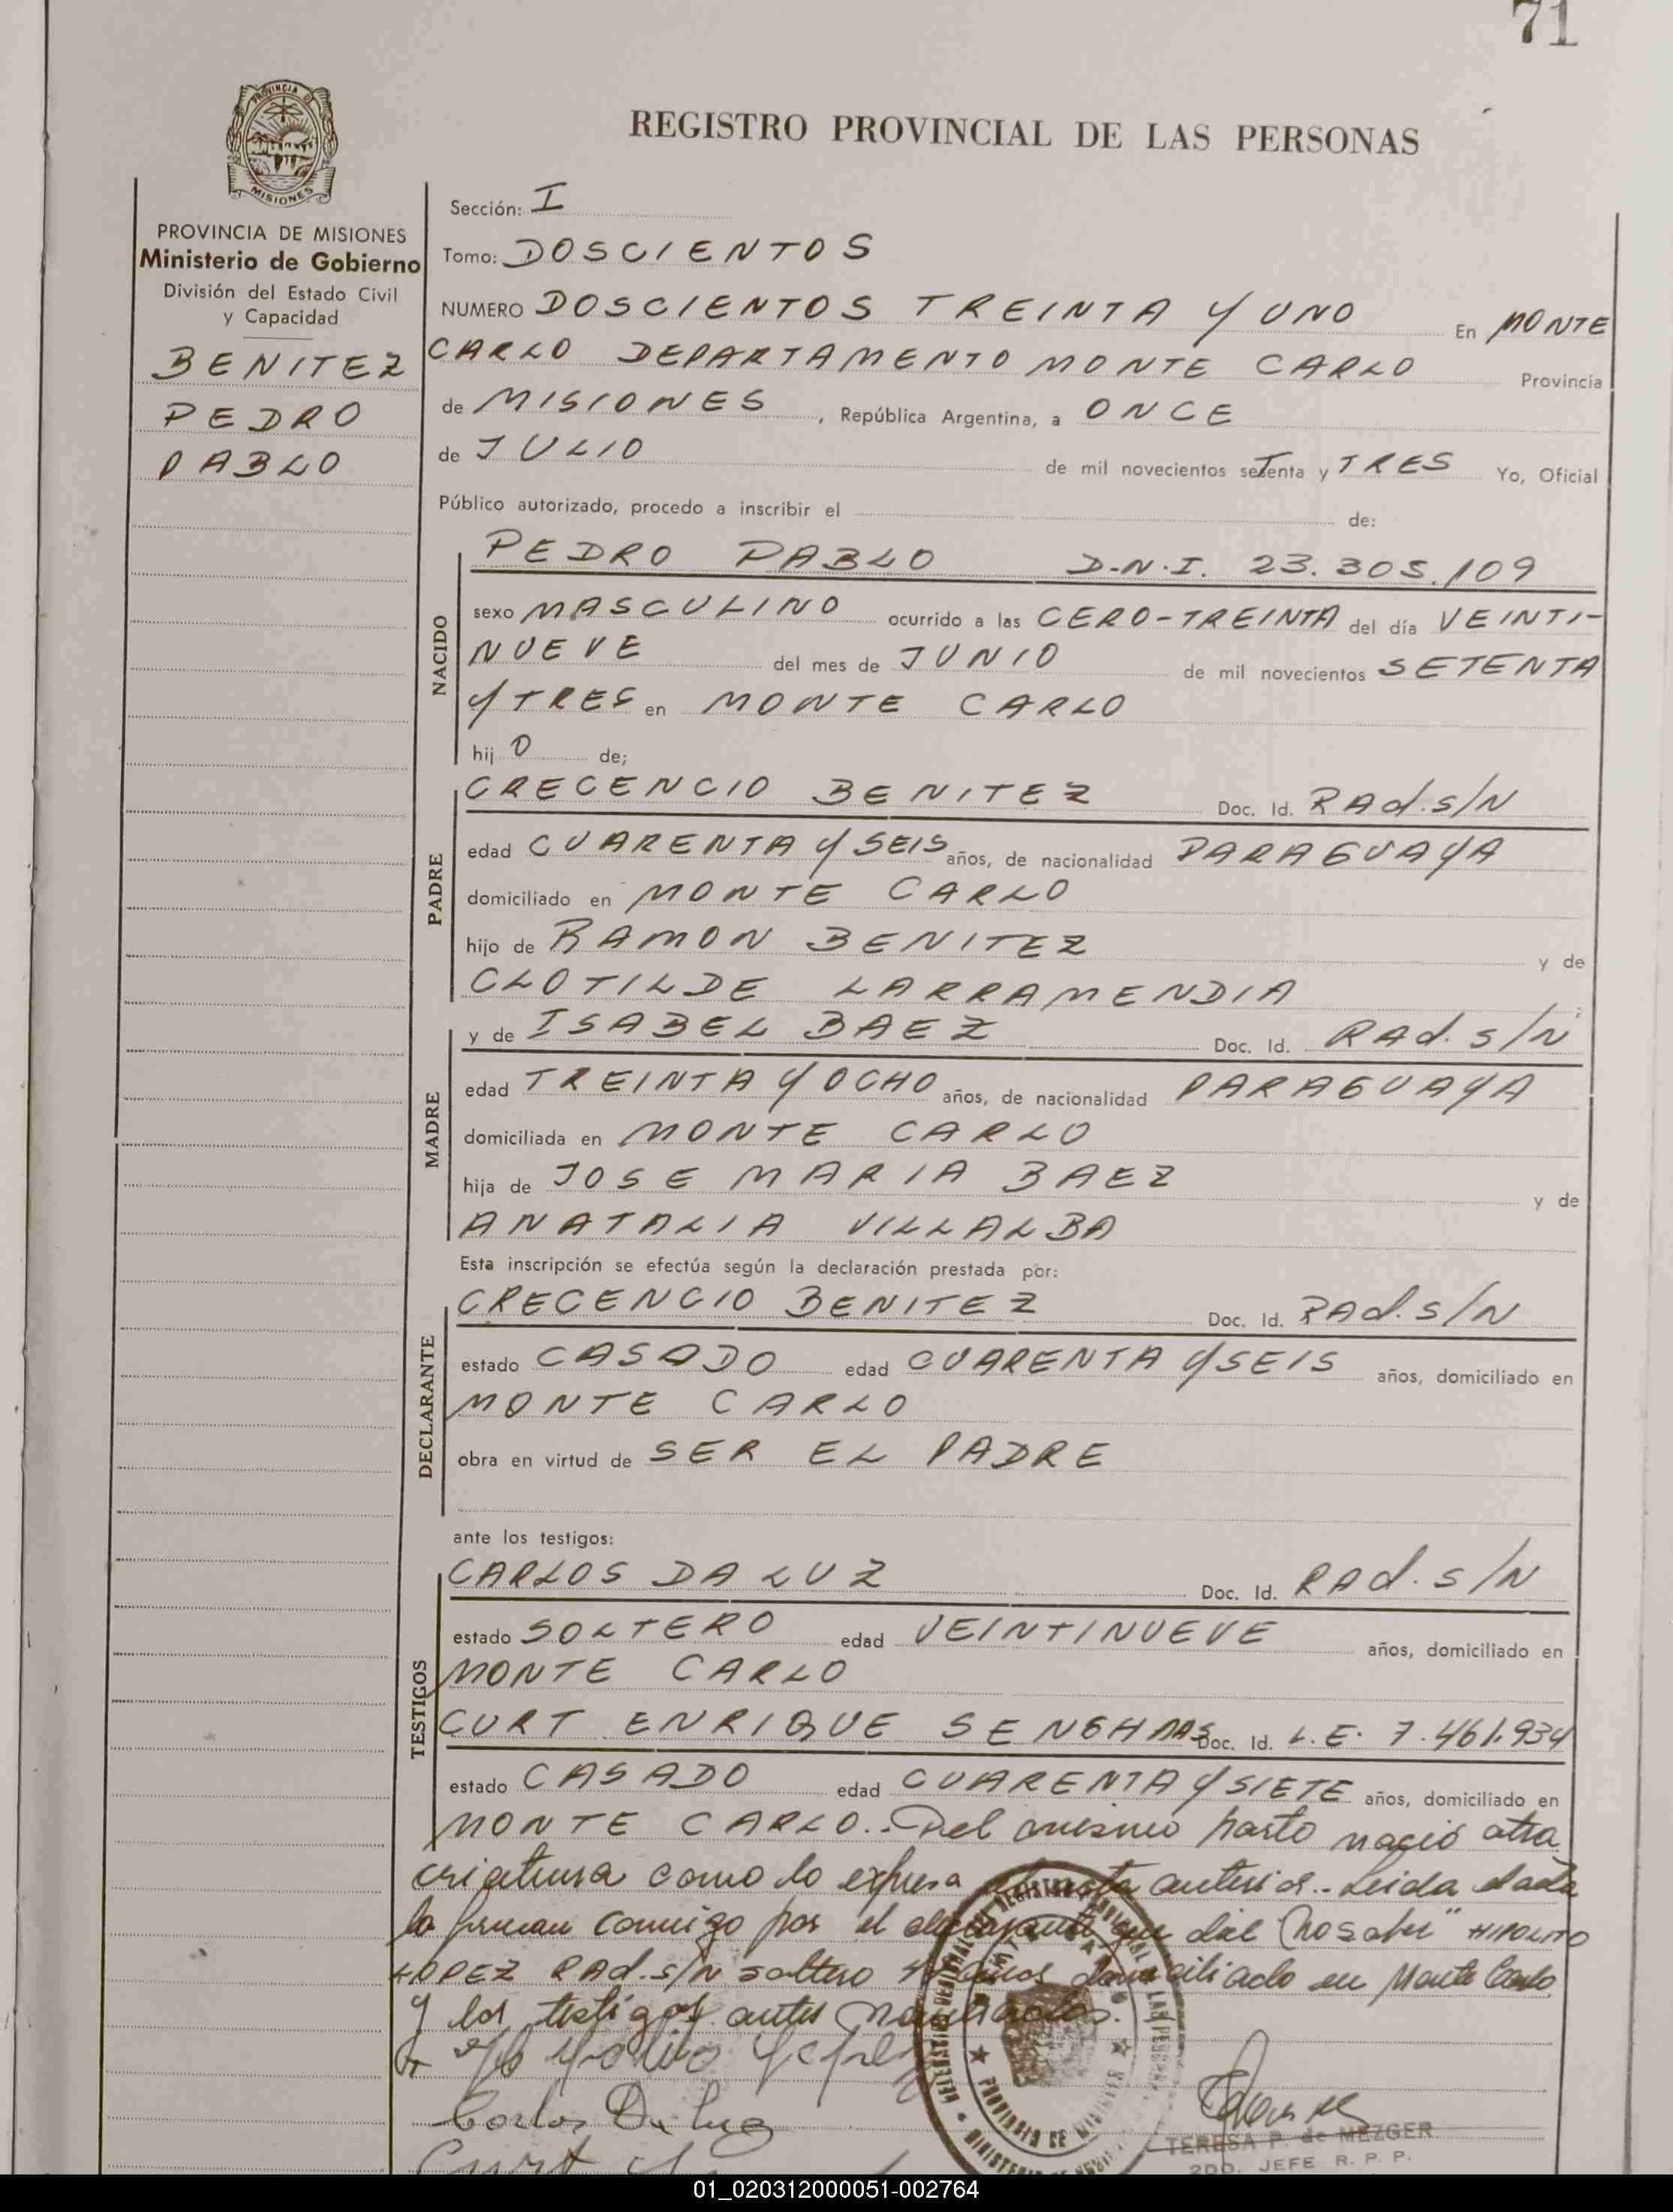 71
REGISTRO PROVINCIAL DE LAS PERSONAS
PROVINCIA DE MISIONES
Ministerio de Gobierno
División del Estado Civil
y Capacidad
BENITEZ
PEDRO
PABLO
Sección: I
Tomo: DOSCIENTOS
NUMERO DOSCIENTOS TREINTA Y UNO En MONTE
CARLO DEPARTAMENTO MONTE CARLO Provincia
de MISIONES, República Argentina, a ONCE
de JULIO de mil novecientos setenta y TRES Yo, Oficial
Público autorizado, procedo a inscribir el de:
NACIDO
PEDRO PABLO D.N.I. 23.305.109
sexo MASCULINO ocurrido a las CERO-TREINTA del día VEINTI-
NUEVE del mes de JUNIO de mil novecientos SETENTA
Y TRES en MONTE CARLO
hij O de;
PADRE
CRECENCIO BENITEZ Doc. Id. RAd. s/N
edad CUARENTA Y SEIS años, de nacionalidad PARAGUAYA
domiciliado en MONTE CARLO
hijo de RAMON BENITEZ y de
CLOTILDE LARRAMENDIA ;
MADRE
y de ISABEL BAEZ Doc. Id. RAd. s/N
edad TREINTA Y OCHO años, de nacionalidad PARAGUAYA
domiciliada en MONTE CARLO
hija de JOSE MARIA BAEZ y de
ANATALIA VILLALBA
Esta inscripción se efectúa según la declaración prestada por:
DECLARANTE
CRECENCIO BENITEZ Doc. Id. RAd. s/N
estado CASADO edad CUARENTA Y SEIS años, domiciliado en
MONTE CARLO
obra en virtud de SER EL PADRE
ante los testigos:
TESTIGOS
CARLOS DA LUZ Doc. Id. RAd. s/N
estado SOLTERO edad VEINTINUEVE años, domiciliado en
MONTE CARLO
CURT ENRIQUE SENGHAAS Doc. Id. L.E. 7.461.934
estado CASADO edad CUARENTA Y SIETE años, domiciliado en
MONTE CARLO.. Del mismo parto nació otra
criatura como lo expresa anterior.. Leida el acta
la firman conmigo por el declarante que dice "no saber" HIPOLITO
LOPEZ RAd. s/N soltero años domiciliado en Monte Carlo
y los testigos antes nombrados.
Carlos Da Luz
Curt
TERESA P. de MEZGER
2DO. JEFE R. P. P.
01_020312000051-002764